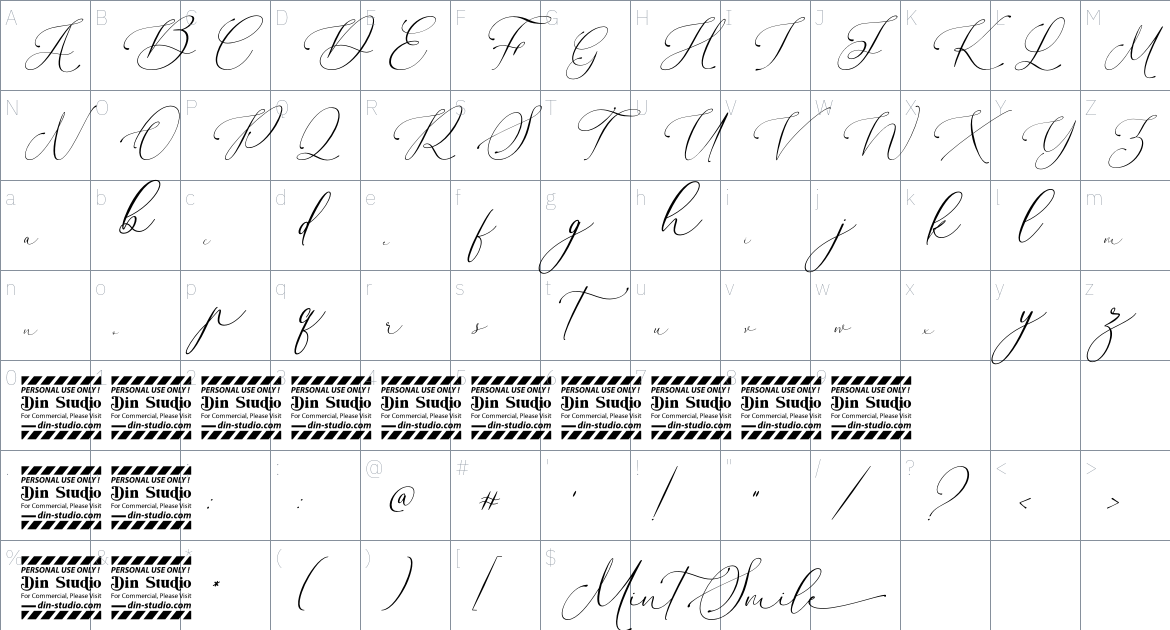 A B C D E F G H I J K L M
A B C D E F G H I J K L M
N O P Q R S T U V W X Y Z
N O P Q R S T U V W X Y Z
a b c d e f g h i j k l m
a b c d e f g h i j k l m
n o p q r s t u v w x y z
n o p q r s t u v w x y z
0 1 2 3 4 5 6 7 8 9
PERSONAL USE ONLY ! PERSONAL USE ONLY ! PERSONAL USE ONLY ! PERSONAL USE ONLY ! PERSONAL USE ONLY ! PERSONAL USE ONLY ! PERSONAL USE ONLY ! PERSONAL USE ONLY ! PERSONAL USE ONLY ! PERSONAL USE ONLY !
Din Studio Din Studio Din Studio Din Studio Din Studio Din Studio Din Studio Din Studio Din Studio Din Studio
For Commercial, Please Visit For Commercial, Please Visit For Commercial, Please Visit For Commercial, Please Visit For Commercial, Please Visit For Commercial, Please Visit For Commercial, Please Visit For Commercial, Please Visit For Commercial, Please Visit For Commercial, Please Visit
din-studio.com din-studio.com din-studio.com din-studio.com din-studio.com din-studio.com din-studio.com din-studio.com din-studio.com din-studio.com
. : @ # ' ! " / ? < >
PERSONAL USE ONLY ! PERSONAL USE ONLY !
Din Studio Din Studio ; : @ # ' ! " / ? < >
For Commercial, Please Visit For Commercial, Please Visit
din-studio.com din-studio.com
% & * ( ) [ $
PERSONAL USE ONLY ! PERSONAL USE ONLY !
Din Studio Din Studio * ( ) [ Mint Smile
For Commercial, Please Visit For Commercial, Please Visit
din-studio.com din-studio.com